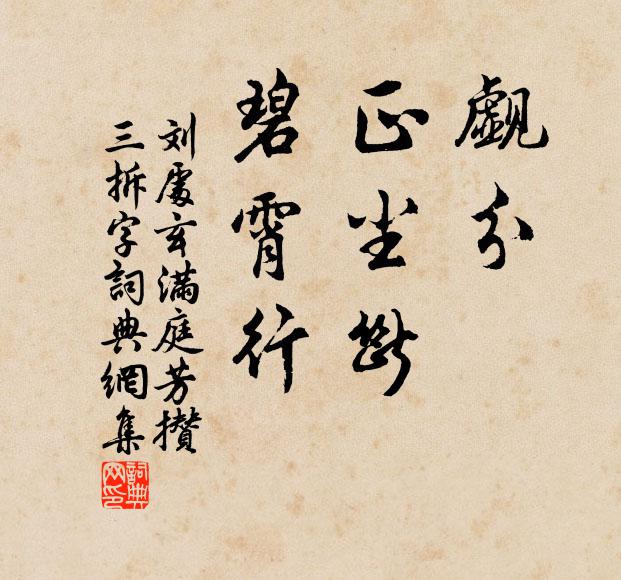 觑分
正坐断
碧霄行
刘处玄满庭芳攒
三拆字詞典網集
詞典网印